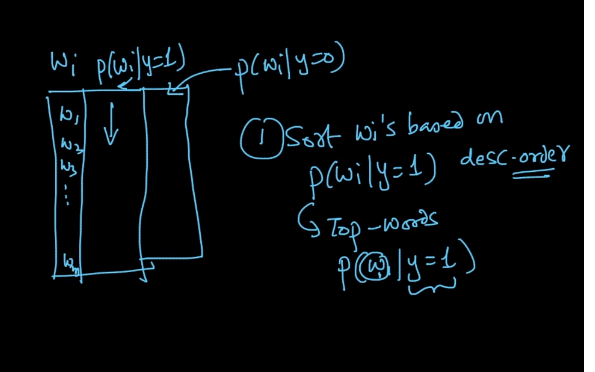 wi p(wi|y=1) p(wi|y=0)
w1
w2
w3
⋮
wn
① Sort wi's based on
p(wi|y=1) desc-order
↳ Top-words
p(wi|y=1)